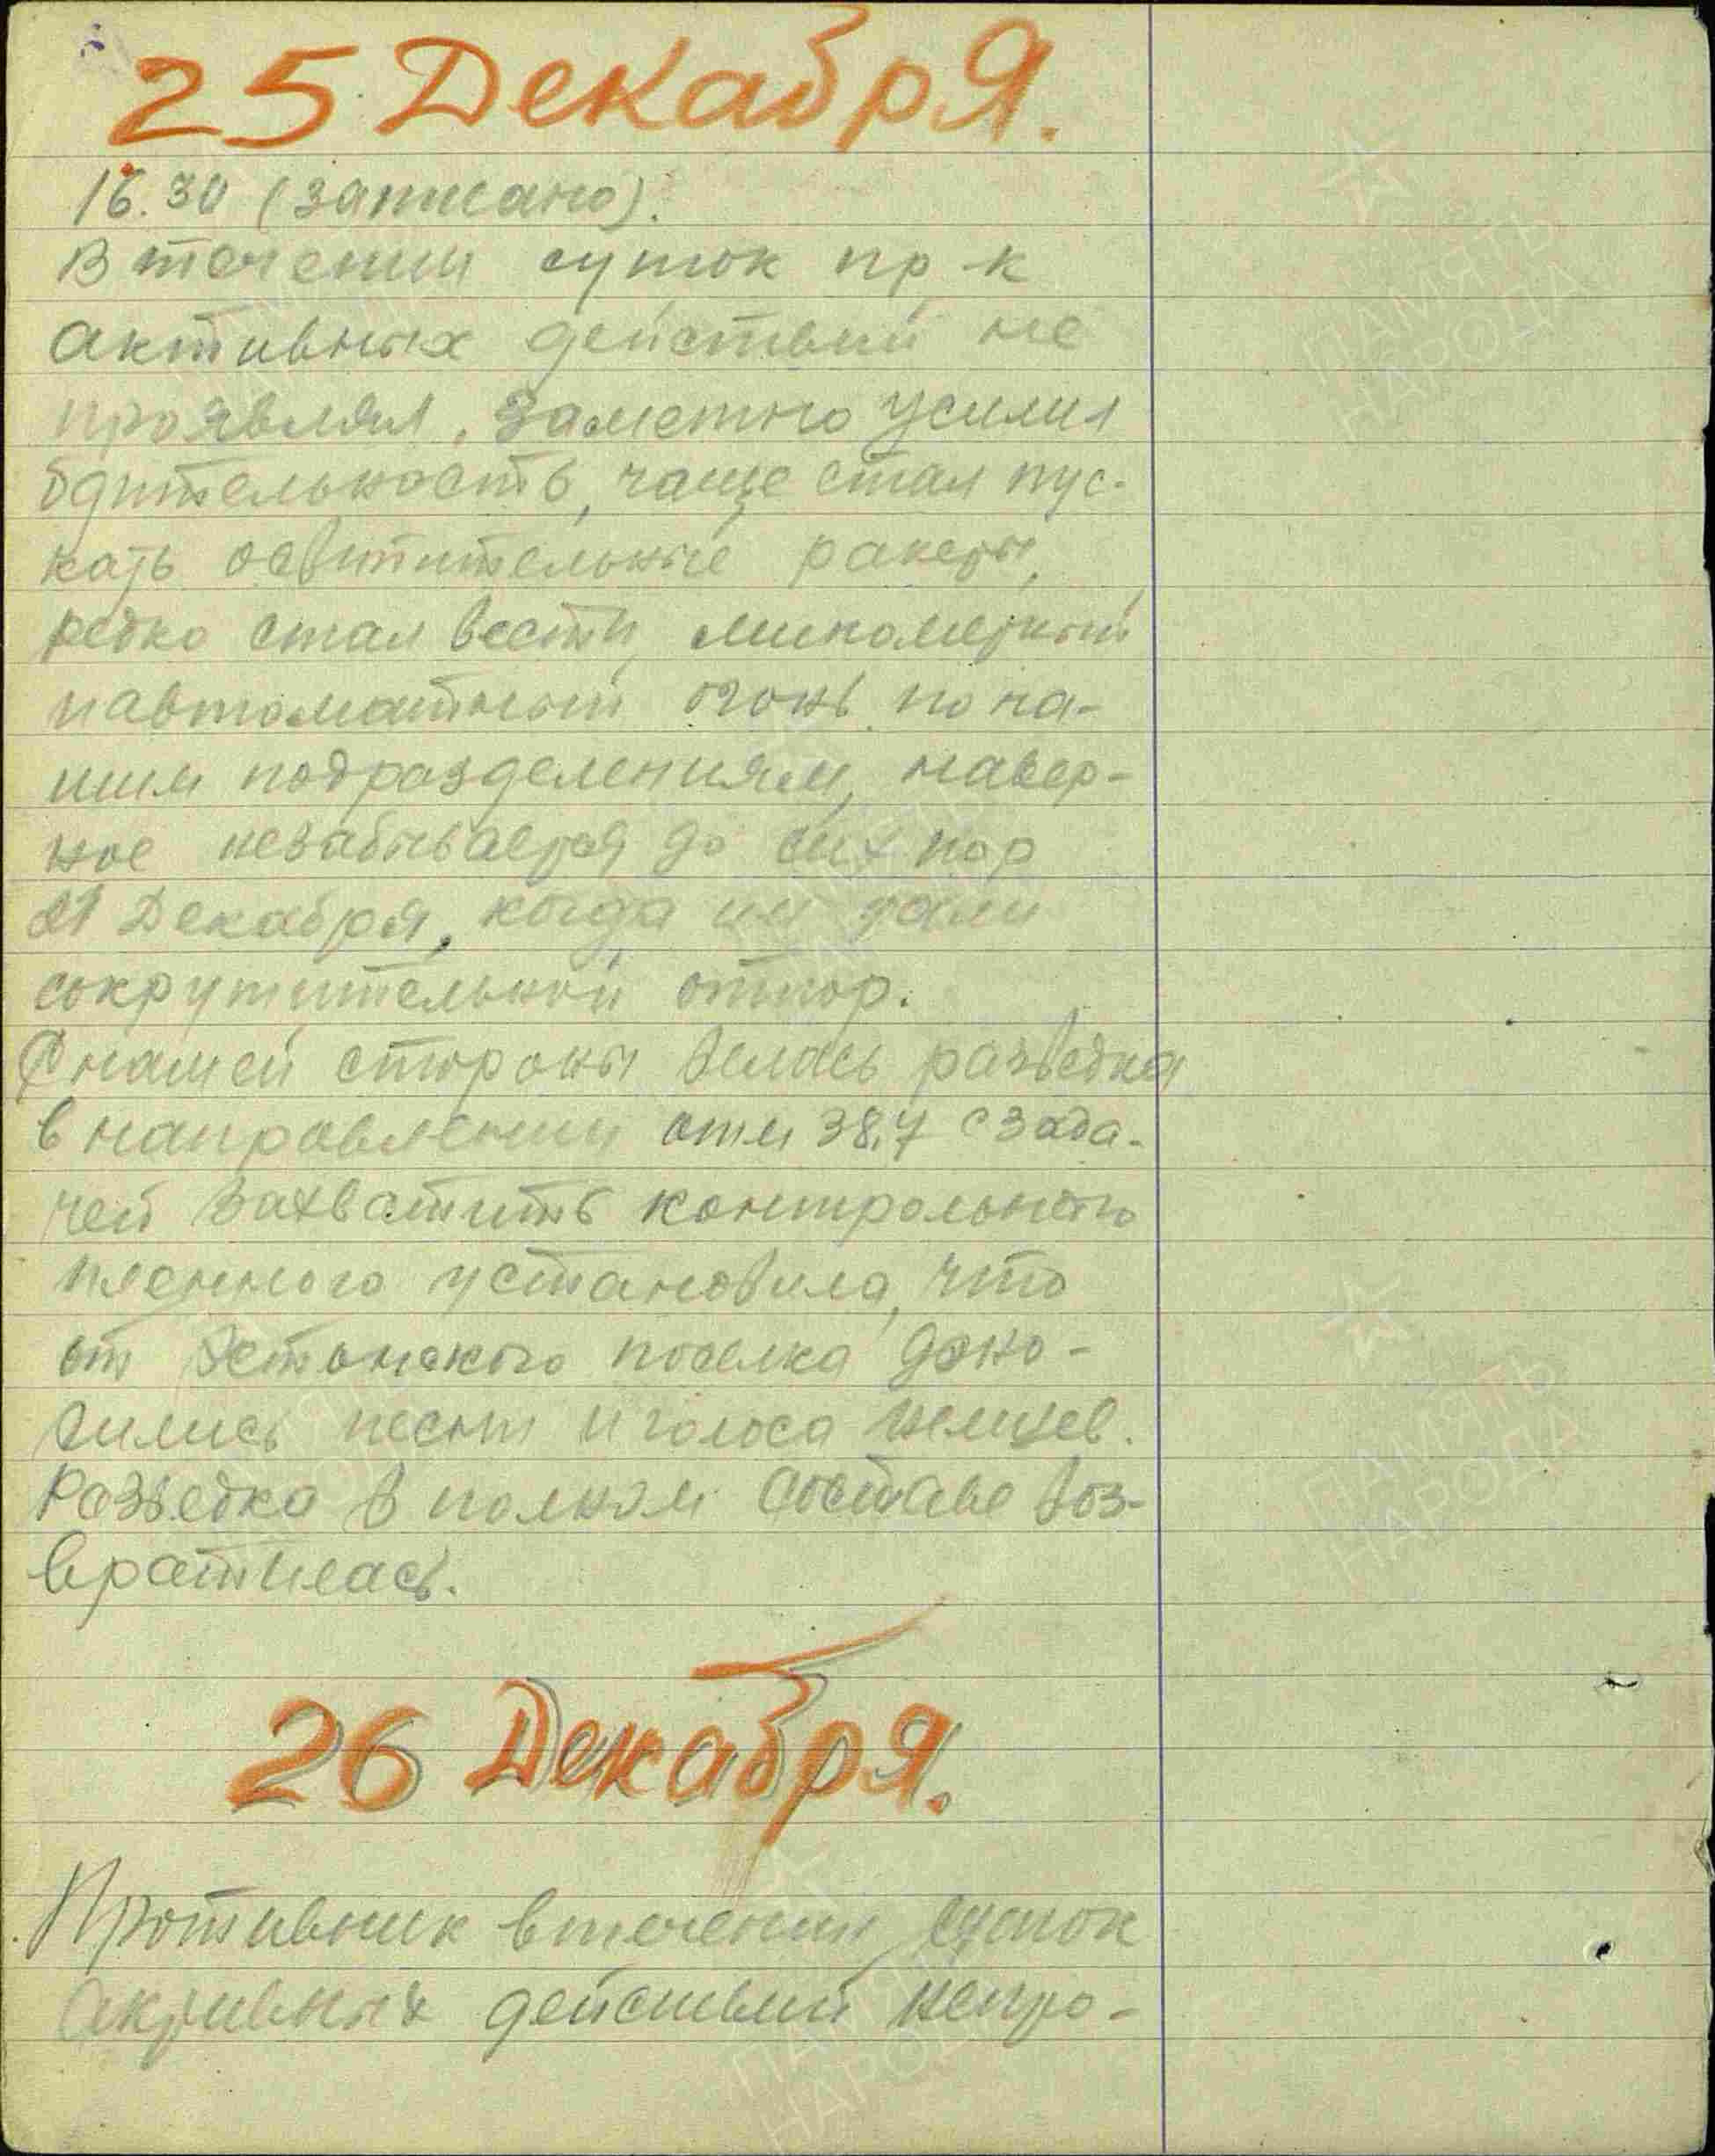 25 Декабря.
16.30 (записано).
В течении суток пр-к
активных действий не
проявлял, заметно усилил
бдительность, чаще стал пус-
кать освитительные ракеты,
редко стал вести минометный
и автоматный огонь по на-
шим подразделениям, навер-
ное незабывается до сих пор
21 Декабря, когда им дали
сокрушительный отпор.
С нашей стороны велась разведка
в направлении отм 38,7 с зада-
чей захватить контрольного
пленного установила, что
от Эстонского поселка доно-
сились песни и голоса немцев.
Разведка в полном составе воз-
вратилась.
26 Декабря.
Противник в течении суток
активных действий непро-
ПАМЯТЬ
НАРОДА
ПАМЯТЬ
НАРОДА